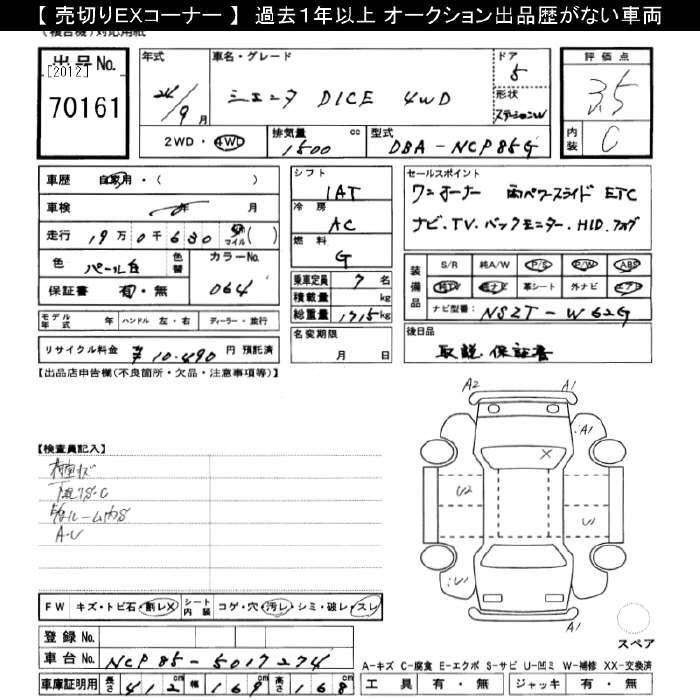 【 売切りEXコーナー 】 過去1年以上 オークション出品歴がない車両
(複合機)対応用紙
出品No. [2012] 70161
年式 24/9月
車名・グレード シエンタ DICE 4WD
ドア 5
形状 ステーションW
評価点 3.5
内装 C
2WD・4WD
排気量 1500 cc
型式 DBA-NCP85G
車歴 自家用・( )
車検 年 月
走行 19万0千630 km マイル( )
色 パール白 色替
カラーNo. 064
保証書 有・無
シフト IAT
冷房 AC
燃料 G
乗車定員 7名
積載量 kg
総重量 1715kg
セールスポイント
ワンオーナー 両パワースライド ETC
ナビ.TV.バックモニター.HID.フォグ
装備品 S/R 純A/W P/S P/W ABS
純TV 純ナビ 革シート 外ナビ エアB
ナビ型番: NSZT-W62G
モデル年式 年 ハンドル 左・右 ディーラー・並行
名変期限 月 日
後日品 取説.保証書
リサイクル料金 ¥10.490 円 預託済
【出品店申告欄(不良箇所・欠品・注意事項等)】
A2 A1
A1
【検査員記入】
X
下廻りS.C
U2
U1
A.U
U1
FW キズ・トビ石・割レX シート内装 コゲ・穴・汚レ・シミ・破レ・スレ
スペア
登録No.
車台No. NCP85-5017274
A-キズ C-腐食 E-エクボ S-サビ U-凹ミ W-補修 XX-交換済
車庫証明用 長さ 412 cm 幅 169 cm 高さ 168 cm
工具 有・無 ジャッキ 有・無